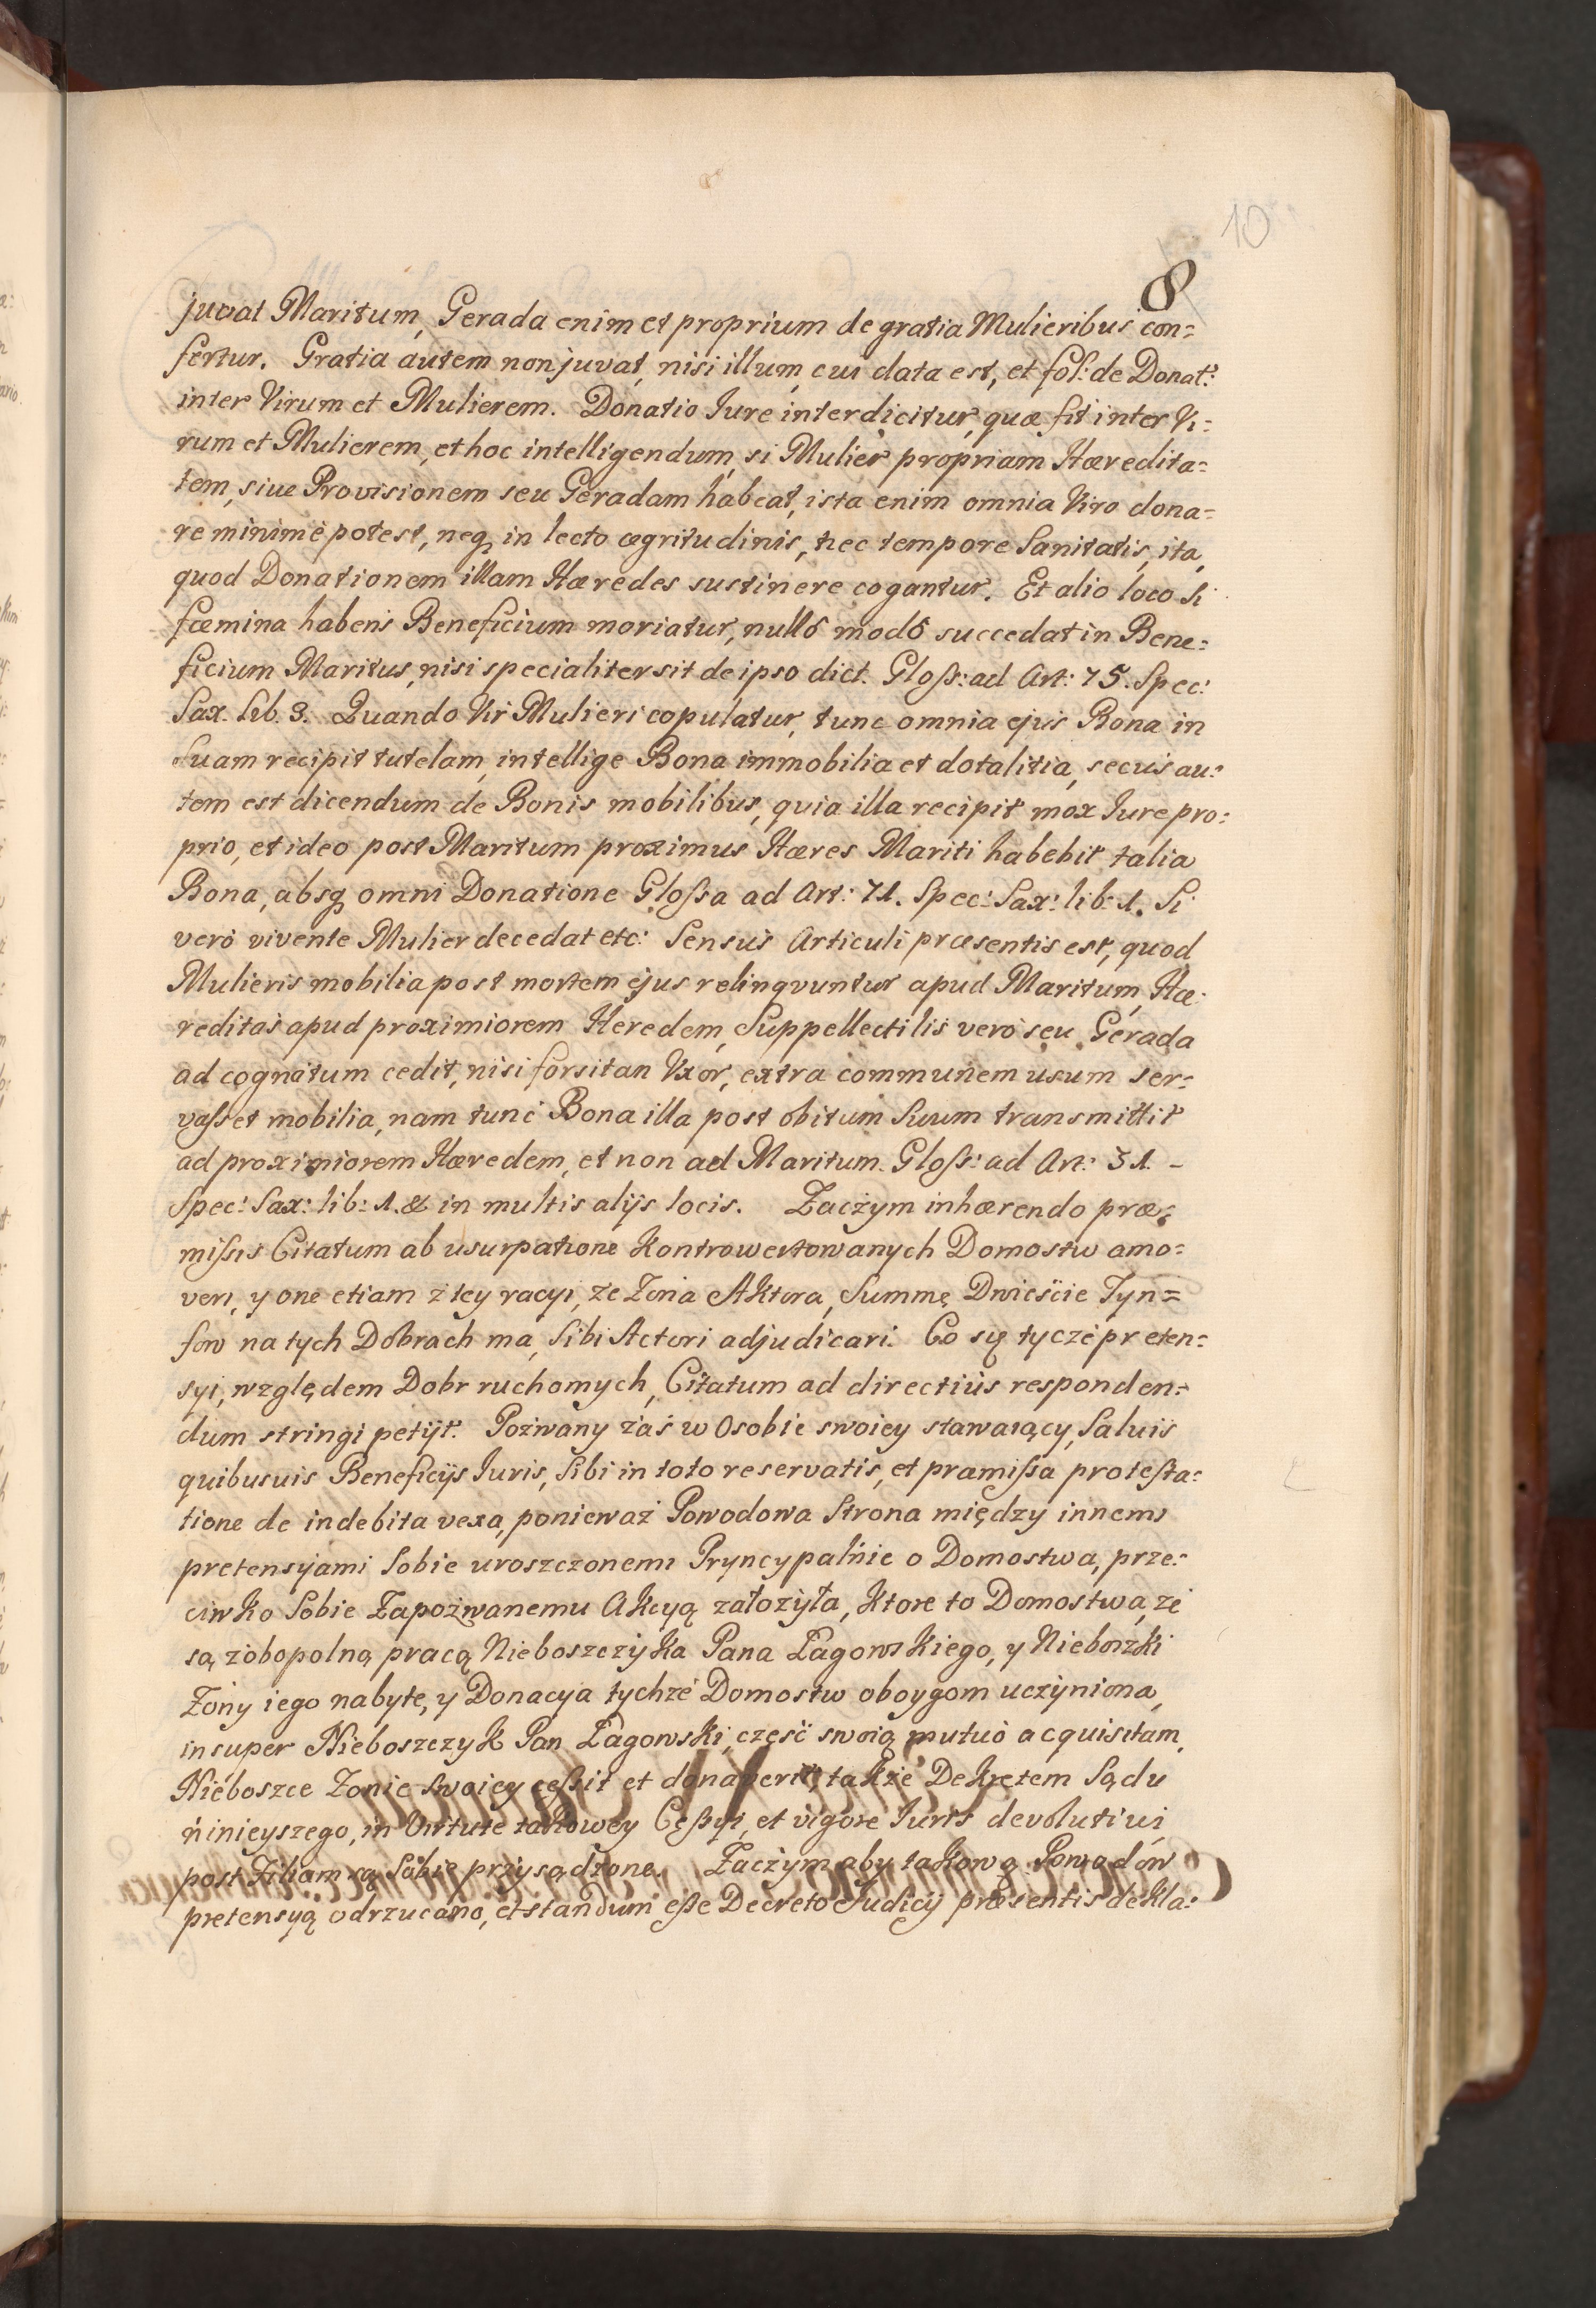 10
8
juvat Maritum, Gerada enim et proprium de gratia Mulieribus con=
fertur. Gratia autem non juvat, nisi illum, cui data est, et fol: de Donat:
inter Virum et Mulierem. Donatio Iure interdicitur, quæ fit inter Vi=
rum et Mulierem, et hoc intelligendum, si Mulier propriam Hæredita=
tem, siue Provisionem seu Geradam habeat, ista enim omnia Viro dona=
re minimè potest, neq in lecto ægritudinis, nec tempore Sanitatis, ita,
quod Donationem illam Hæredes sustinere cogantur. Et alio loco Si
fœmina habens Beneficium moriatur, nullô modô succedat in Bene=
ficium Maritus, nisi specialiter sit de ipso dict. Gloß: ad Art: 75. Spec:
Sax. lib. 3. Quando Vir Mulieri copulatur, tunc omnia ejus Bona in
Suam recipit tutelam, intellige Bona immobilia et dotalitia, secus au=
tem est dicendum de Bonis mobilibus, quia illa recipit mox Iure pro=
prio, et ideo post Maritum proximus Hæres Mariti habebit talia
Bona, absq omni Donatione Gloßa ad Art: 71. Spec: Sax: lib: 1. Si
verò vivente Mulier decedat etc: Sensus Articuli præsentis est, quod
Mulieris mobilia post mortem ejus relinqvuntur apud Maritum, Hæ=
reditas apud proximiorem Heredem, Suppellectilis verò seu Gerada
ad cognatum cedit, nisi forsitan Vxor, extra communem usum ser=
vaßet mobilia, nam tunc Bona illa post obitum Suum transmittit
ad proximiorem Hæredem, et non ad Maritum. Gloß: ad Art: 31. -
Spec: Sax: lib: 1. & in multis alijs locis. Zaczym inhærendo præ=
mißis Citatum ab usurpatione Kontrowertowanych Domostw amo=
veri, y one etiam z tey racyi, ze Zona Aktora, Summę Dwieście Tyn=
fow na tych Dobrach ma, Sibi Actori adjudicari. Co się tycze preten=
syi, względem Dobr ruchomych, Citatum ad directiùs responden=
dum stringi petijt. Pozwany zaś w Osobie swoiey stawaiący, Saluis
quibusuis Beneficijs Iuris, Sibi in toto reservatis, et præmißa protesta=
tione de indebita vexa, ponieważ Powodowa Strona między innemi
pretensyjami Sobie uroszczonemi Pryncypalnie o Domostwa, prze=
ciwko Sobie Zapozwanemu Akcyą załozyła, Ktore to Domostwa, ze
są zobopolną pracą Nieboszczyka Pana Łagowskiego, y Nieboszki
Zony iego nabyte, y Donacya tychze Domostw oboygom uczyniona,
insuper Nieboszczyk Pan Łagowski, częsć swoią mutuò acquisitam,
Nieboszce Zonie Swoiey ceßit et donaverit, takze Dekretem Sądu
ninieyszego, in Virtute takowey Ceßyi, et vigore Iuris devolutivi
post Filiam są Sobie przysądzone. Zaczym aby takową Powodow
pretensyą odrzucono, et standum eße Decreto Judicij præsentis dekla=